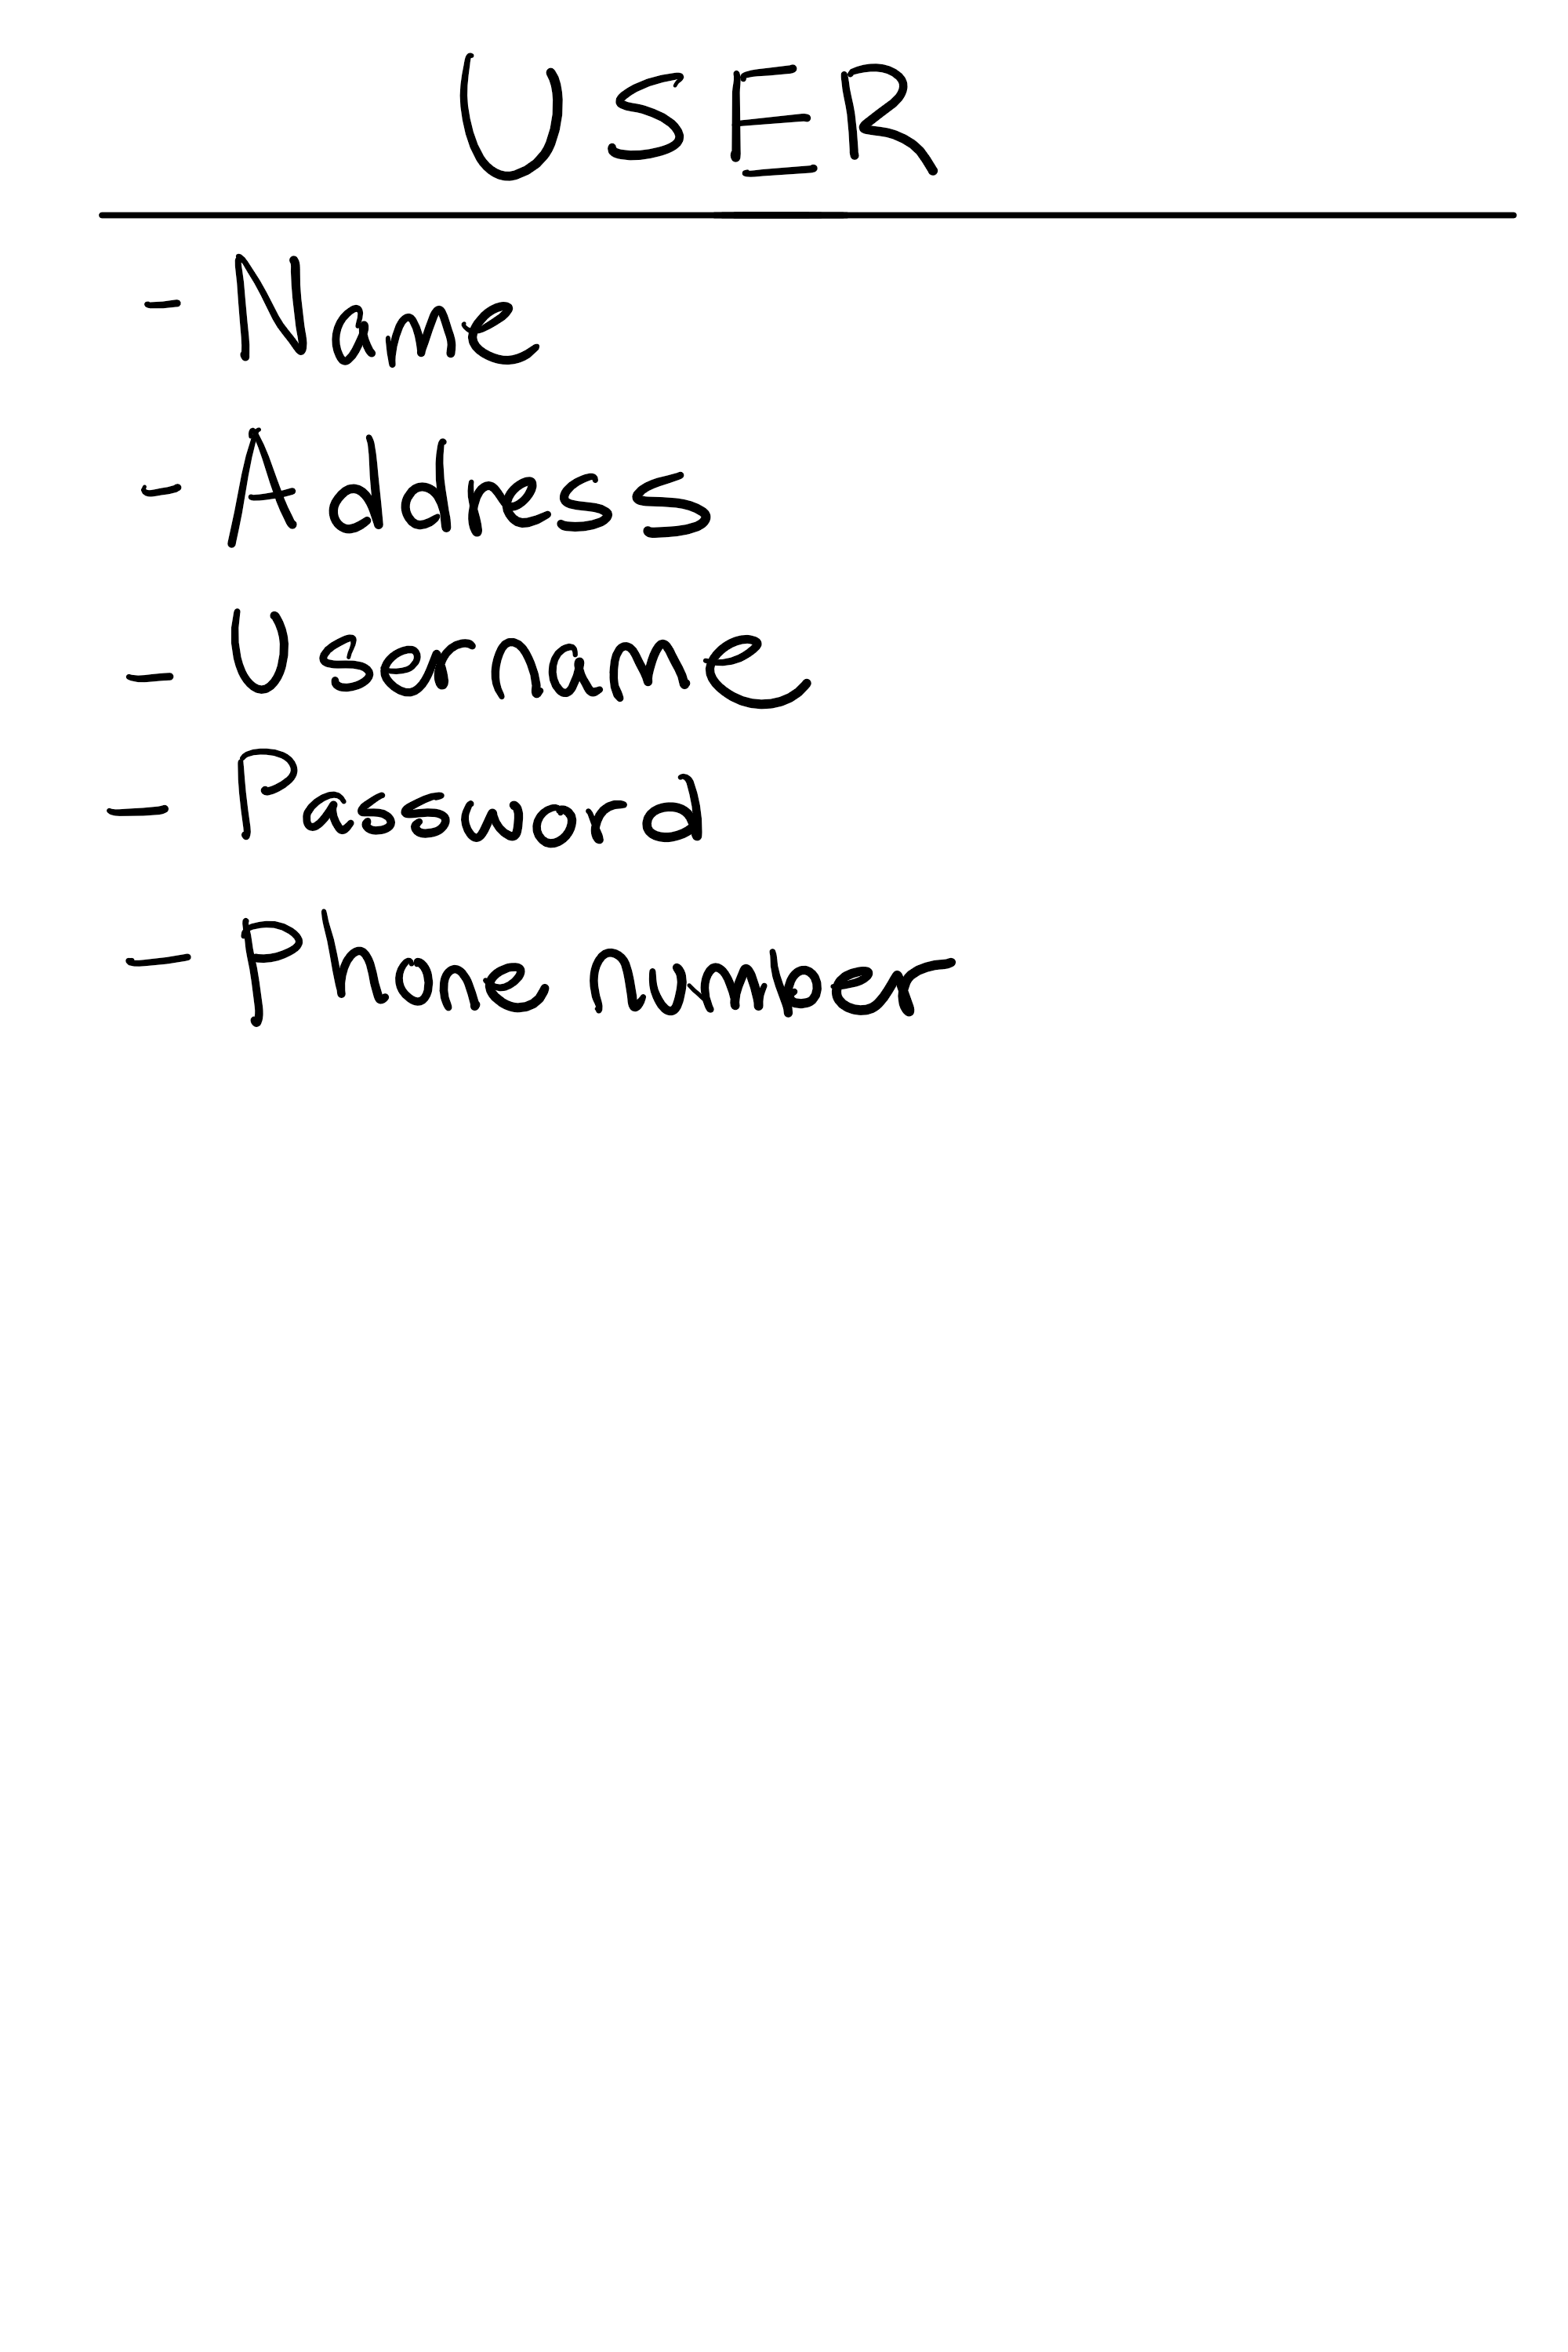 USER
- Name
- Address
- Username
- Password
- Phone number